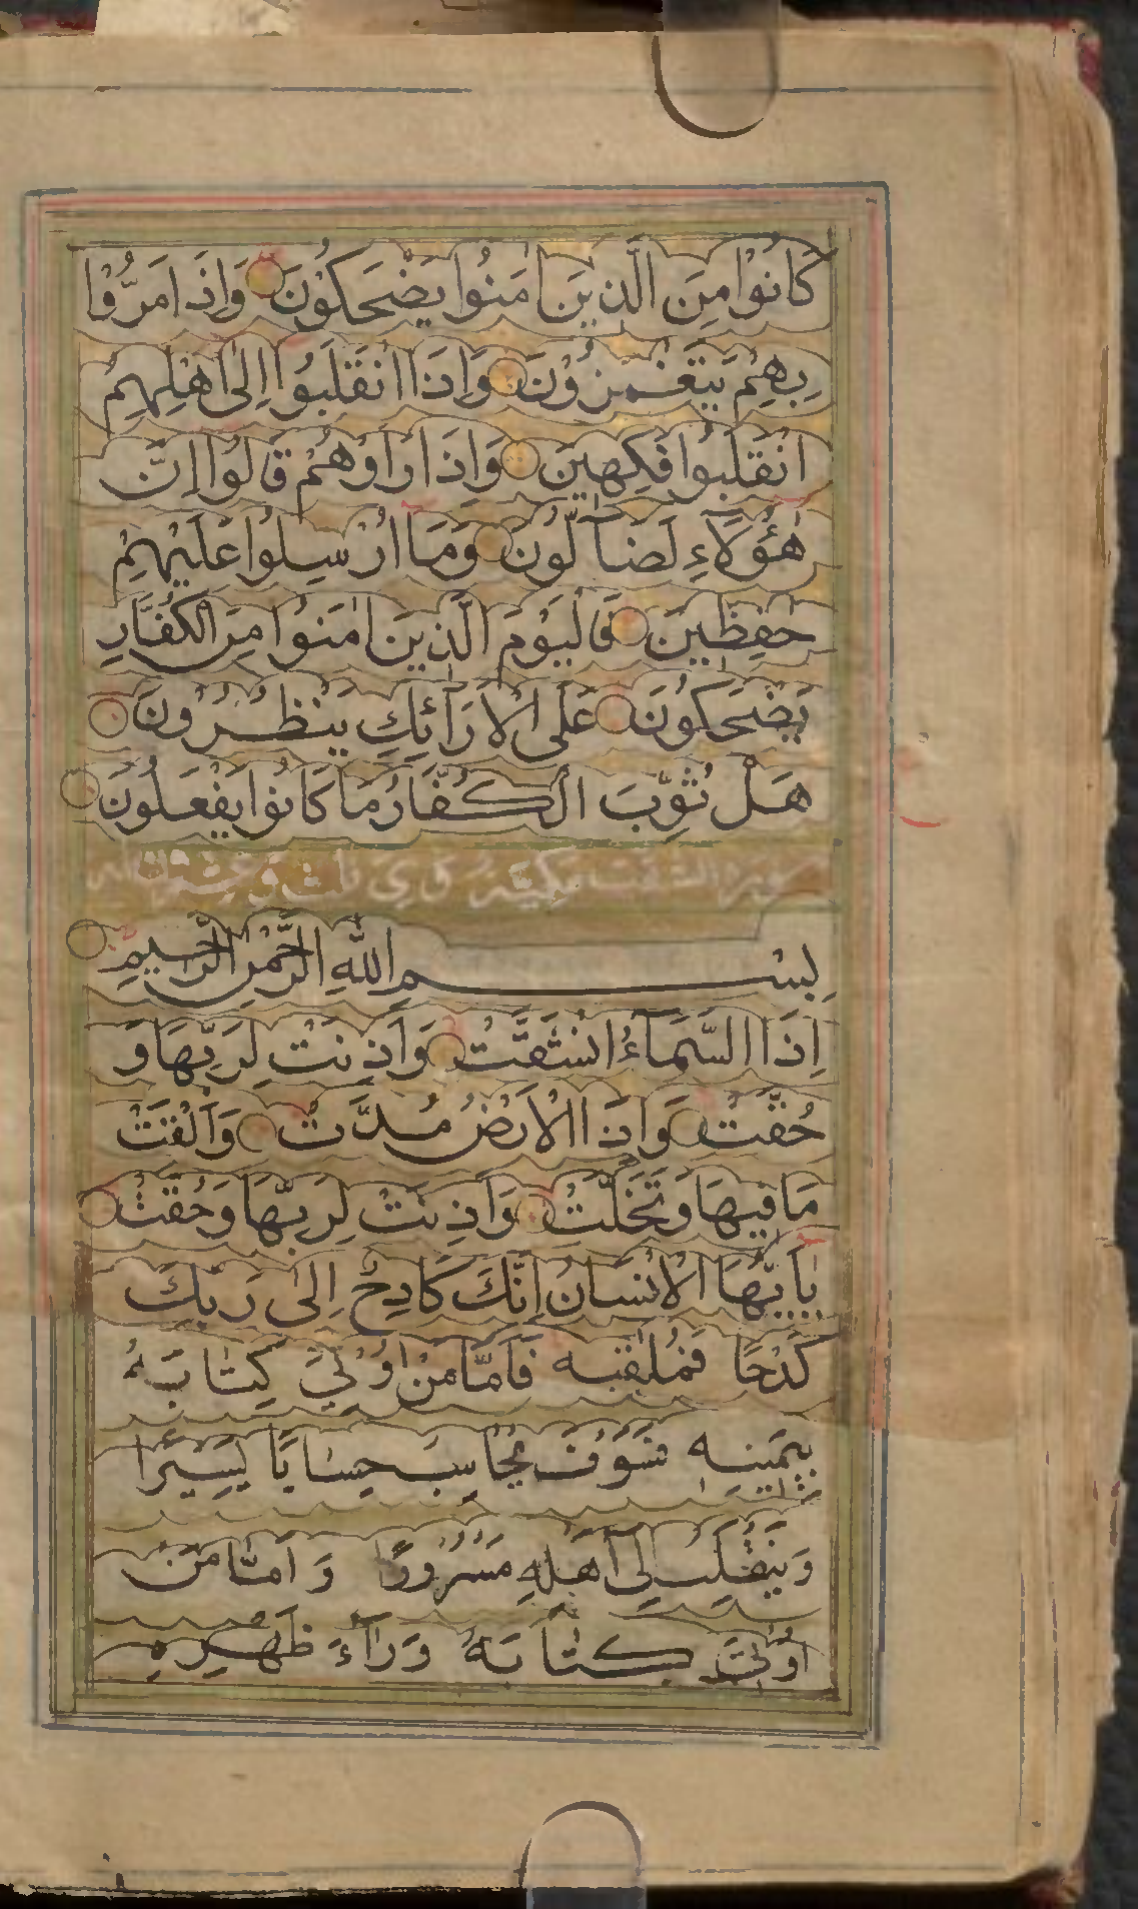 كَانُوْا مِنَ الَّذِيْنَ اٰمَنُوا يَضْحَكُوْنَ وَاِذَا مَرُّوْا
بِهِمْ يَتَغَمَزُوْنَ وَاِذَا انْقَلَبُوا اِلٰى اَهْلِهِمُ
انْقَلَبُوا فَكِهِيْنَ وَاِذَا رَاَوْهُمْ قَالُوا اِنَّ
هٰؤُلَاءِ لَضَآلُّونَ وَمَا اُرْسِلُوا عَلَيْهِمْ
حٰفِظِيْنَ فَالْيَوْمَ الَّذِيْنَ اٰمَنُوا مِنَ الْكُفَّارِ
يَضْحَكُونَ عَلَى الْاَرَآئِكِ يَنْظُرُونَ
هَلْ ثُوِّبَ الْكُفَّارُ مَا كَانُوا يَفْعَلُونَ
سورة انشقت مكية وهي ثلث وعشرون آية
بِسْمِ اللّٰهِ الرَّحْمٰنِ الرَّحِيْمِ
اِذَا السَّمَآءُ انْشَقَّتْ وَاَذِنَتْ لِرَبِّهَا وَ
حُقَّتْ وَاِذَا الْاَرْضُ مُدَّتْ وَاَلْقَتْ
مَا فِيْهَا وَتَخَلَّتْ وَاَذِنَتْ لِرَبِّهَا وَحُقَّتْ
يٰاَيُّهَا الْاِنْسَانُ اِنَّكَ كَادِحٌ اِلٰى رَبِّكَ
كَدْحًا فَمُلٰقِيْهِ فَاَمَّا مَنْ اُوْتِيَ كِتَابَهُ
بِيَمِيْنِهٖ فَسَوْفَ يُحَاسَبُ حِسَابًا يَسِيْرًا
وَيَنْقَلِبُ اِلٰى اَهْلِهٖ مَسْرُوْرًا وَاَمَّا مَنْ
اُوْتِيَ كِتَابَهُ وَرَآءَ ظَهْرِهٖ